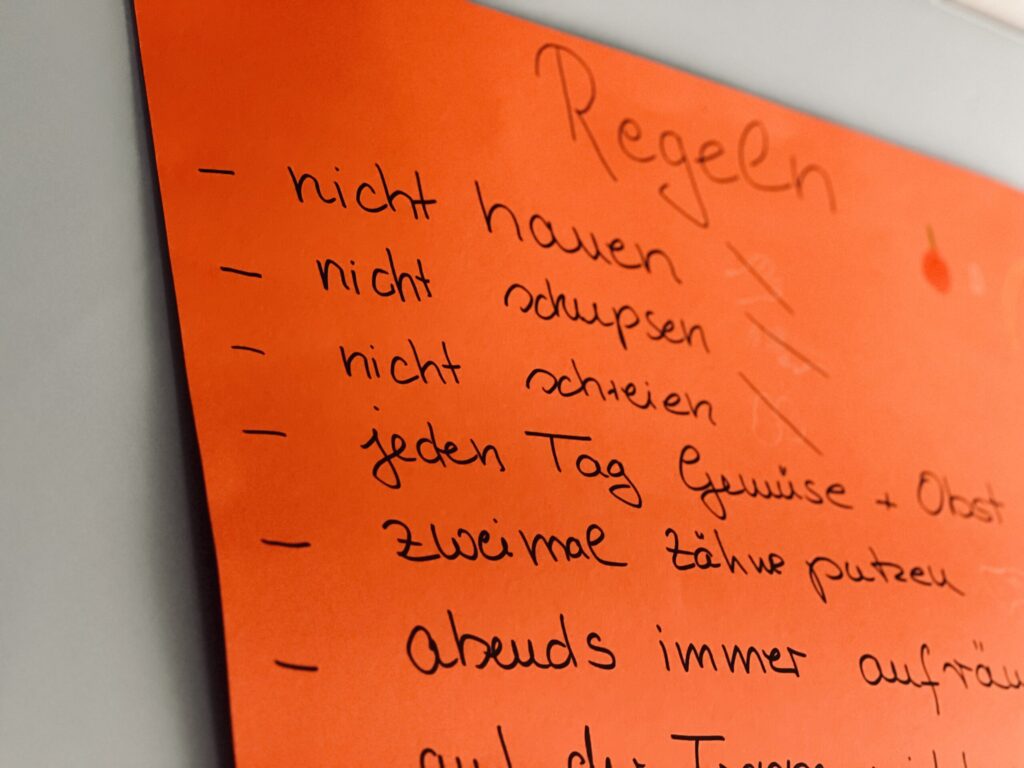 Regeln
- nicht hauen
- nicht schupsen
- nicht schreien
- jeden Tag Gemüse + Obst
- zweimal Zähne putzen
- abends immer aufräu
auf der